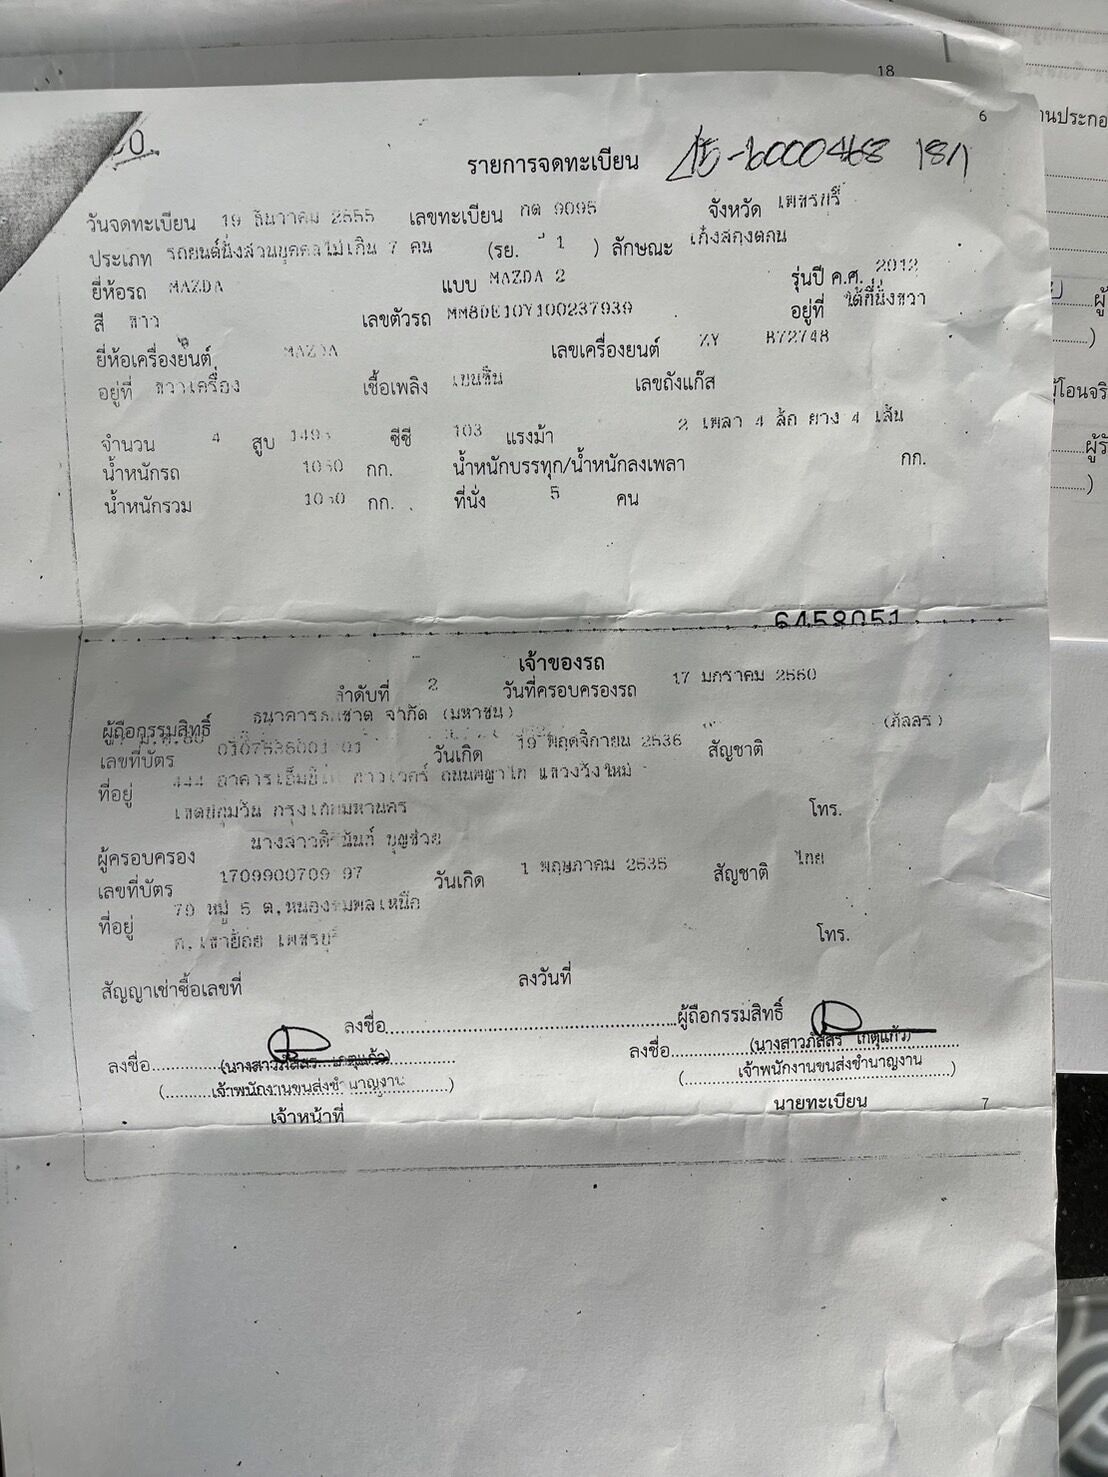 18
6
รายการจดทะเบียน 15-6000468 18/1
วันจดทะเบียน 19 ธันวาคม 2555 เลขทะเบียน กต 9095 จังหวัด เพชรบุรี
ประเภท รถยนต์นั่งส่วนบุคคลไม่เกิน 7 คน (รย. 1 ) ลักษณะ เก๋งสองตอน
ยี่ห้อรถ MAZDA แบบ MAZDA 2 รุ่นปี ค.ศ. 2012
สี ขาว เลขตัวรถ MM8DE10Y100237939 อยู่ที่ ใต้ที่นั่งขวา
ยี่ห้อเครื่องยนต์ MAZDA เลขเครื่องยนต์ ZY 872748
อยู่ที่ ขวาเครื่อง เชื้อเพลิง เบนซิน เลขถังแก๊ส
จำนวน 4 สูบ ซีซี 103 แรงม้า 2 เพลา 4 ล้อ ยาง 4 เส้น
น้ำหนักรถ กก. น้ำหนักบรรทุก/น้ำหนักลงเพลา กก.
น้ำหนักรวม กก. ที่นั่ง 5 คน
6458051
เจ้าของรถ
ลำดับที่ 2 วันที่ครอบครองรถ 17 มกราคม 2560
ผู้ถือกรรมสิทธิ์ ธนาคารธนชาต จำกัด (มหาชน)
เลขที่บัตร วันเกิด 19 พฤศจิกายน 2536 สัญชาติ
ที่อยู่ 444 อาคารเอ็มบีเค ทาวเวอร์ ถนนพญาไท แขวงวังใหม่
เขตปทุมวัน กรุงเทพมหานคร โทร.
ผู้ครอบครอง บุญช่วย
เลขที่บัตร วันเกิด 1 พฤษภาคม 2535 สัญชาติ ไทย
ที่อยู่ 79 หมู่ 5 ต.หนองชุมพลเหนือ
อ.เขาย้อย เพชรบุรี โทร.
สัญญาเช่าซื้อเลขที่ ลงวันที่
ลงชื่อ ผู้ถือกรรมสิทธิ์
ลงชื่อ (นางสาวภัสสร เกตุแก้ว) ลงชื่อ (นางสาวภัสสร เกตุแก้ว)
(เจ้าพนักงานขนส่งชำนาญงาน) (เจ้าพนักงานขนส่งชำนาญงาน)
เจ้าหน้าที่ นายทะเบียน 7